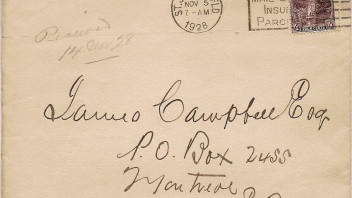 Received
14 Nov 28
NOV 5
7-AM
1928
MAIL
INSU
PARC
James Campbell Esq
P.O. Box 2455
Montreal
P.Q.